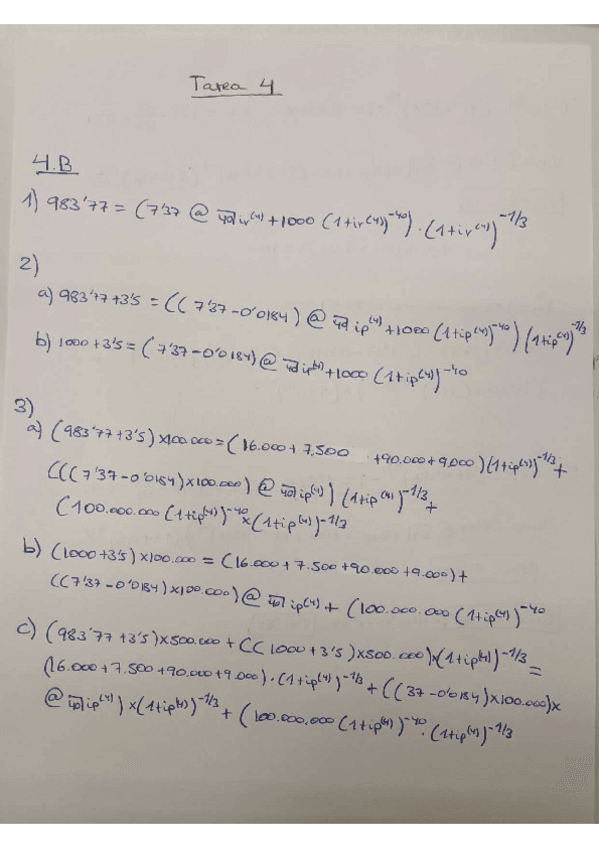 Tarea 4
4.B
1) 983'77 = (7'37 @ 40⌉ir⁽⁴⁾ + 1000 (1+ir⁽⁴⁾)⁻⁴⁰) · (1+ir⁽⁴⁾)^-1/3
2)
a) 983'77+3'5 = ((7'37-0'0184) @ 40⌉ip⁽⁴⁾ + 1000 (1+ip⁽⁴⁾)⁻⁴⁰) (1+ip⁽⁴⁾)^-1/3
b) 1000+3'5 = (7'37-0'0184) @ 40⌉ip⁽⁴⁾ + 1000 (1+ip⁽⁴⁾)⁻⁴⁰
3)
a) (983'77+3'5)x100.000 = (16.000+7.500 +90.000+9.000)(1+ip⁽⁴⁾)^-1/3 +
(((7'37-0'0184)x100.000) @ 40⌉ip⁽⁴⁾) (1+ip⁽⁴⁾)^-1/3 +
(100.000.000 (1+ip⁽⁴⁾)⁻⁴⁰ x (1+ip⁽⁴⁾)^-1/3
b) (1000+3'5) x100.000 = (16.000+7.500+90.000+9.000)+
((7'37-0'0184)x100.000) @ 40⌉ip⁽⁴⁾ + (100.000.000 (1+ip⁽⁴⁾)⁻⁴⁰
c) (983'77+3'5)x500.000 + ((1000+3'5)x500.000)x(1+ip⁽⁴⁾)^-1/3 =
(16.000+7.500+90.000+9.000)·(1+ip⁽⁴⁾)^-1/3 + ((37-0'0184)x100.000)x
@ 40⌉ip⁽⁴⁾) x (1+ip⁽⁴⁾)^-1/3 + (100.000.000 (1+ip⁽⁴⁾)⁻⁴⁰ · (1+ip⁽⁴⁾)^-1/3